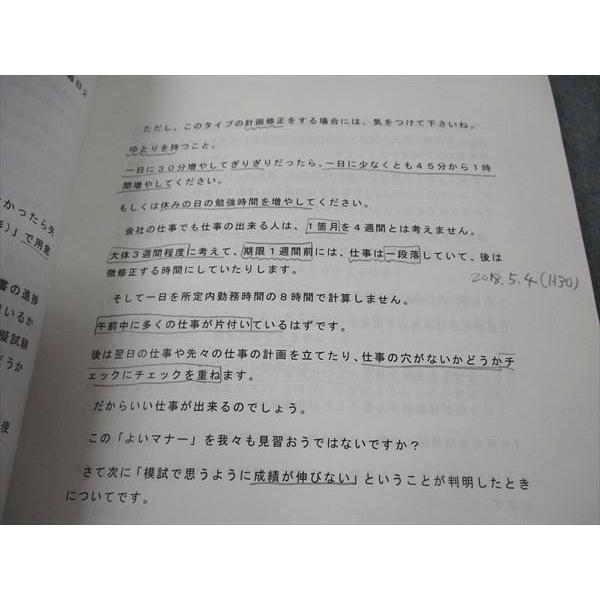 毎日2
かったら先
彡）」で用意
書の進捗
ているか
擬試験
どうか
使
ただし、このタイプの計画修正をする場合には、気をつけて下さいね。
ゆとりを持つこと。
一日に30分増やしてぎりぎりだったら、一日に少なくとも45分から1時
間増やしてください。
もしくは休みの日の勉強時間を増やしてください。
会社の仕事でも仕事の出来る人は、1箇月を4週間とは考えません。
大体3週間程度に考えて、期限1週間前には、仕事は一段落していて、後は
微修正する時間にしていたりします。
2018.5.4(1130)
そして一日を所定内勤務時間の8時間で計算しません。
午前中に多くの仕事が片付いているはずです。
後は翌日の仕事や先々の仕事の計画を立てたり、仕事の穴がないかどうかチ
ェックにチェックを重ねます。
だからいい仕事が出来るのでしょう。
この「よいマナー」を我々も見習おうではないですか？
さて次に「模試で思うように成績が伸びない」ということが判明したとき
についてです。